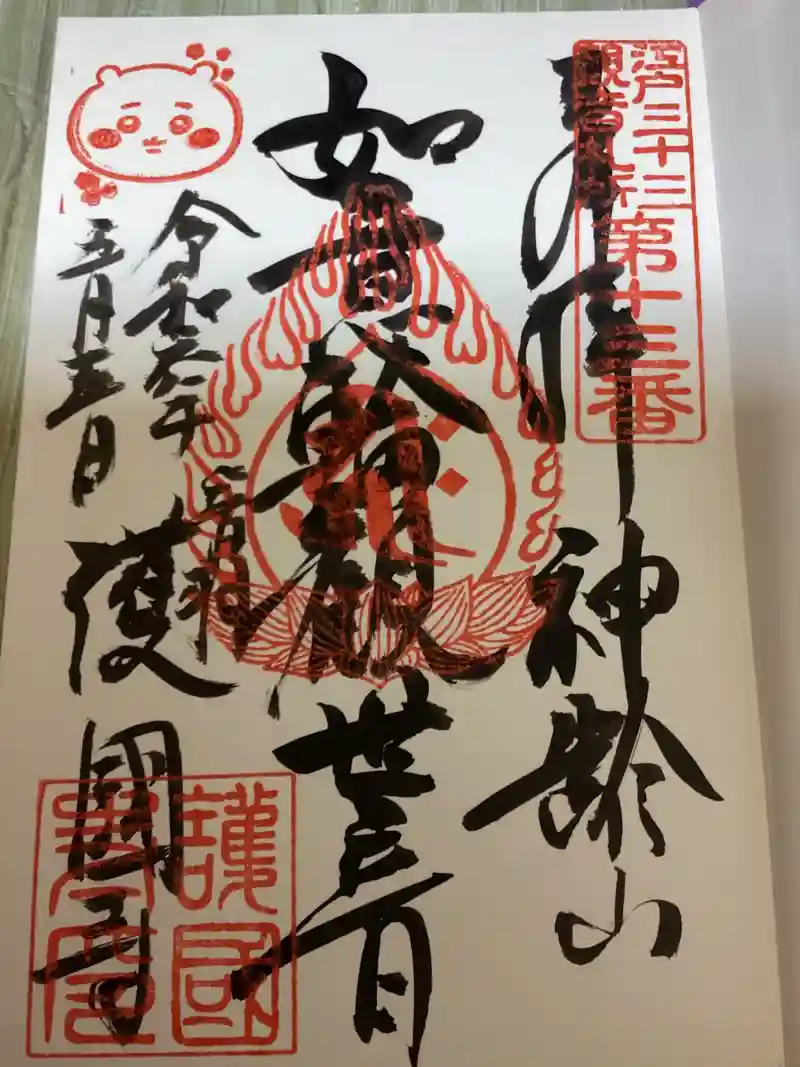 江戸三十三
観音札所
第十三番
奉拝
神齢山
如意輪観世音
令和六年
五月五日
音羽
護國寺
護國
寺印